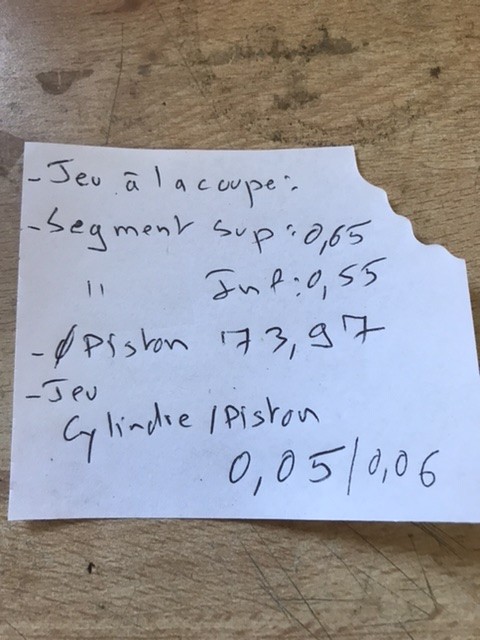 - Jeu à la coupe:
- Segment sup: 0,65
" Inf: 0,55
- Ø Piston 73,97
- Jeu
Cylindre / Piston
0,05/0,06